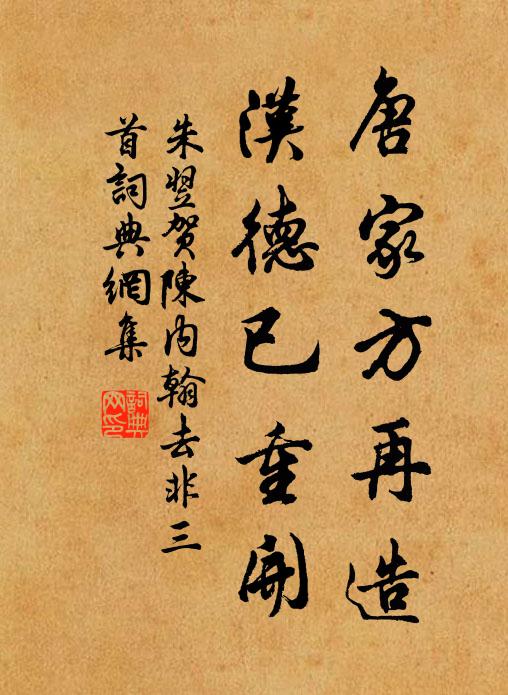 唐家方再造
漢德已重開
朱翌賀陳內翰去非三
首詞典網集
詞典
网印